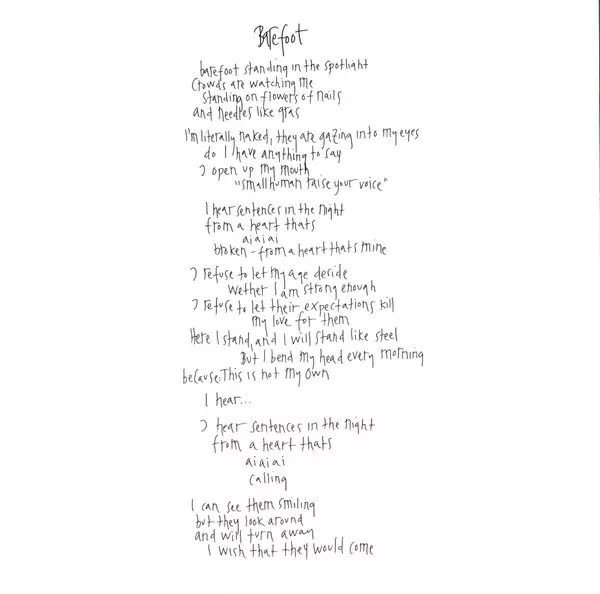 Barefoot
barefoot standing in the spotlight
Crowds are watching me
standing on flowers of nails
and needles like gras
I'm literally naked, they are gazing into my eyes
do I have anything to say
I open up my mouth
"small human raise your voice"
I hear sentences in the night
from a heart thats
aiaiai
broken - from a heart thats mine
I refuse to let my age decide
wether I am strong enough
I refuse to let their expectations kill
my love for them
Here I stand, and I will stand like steel
But I bend my head every morning
because: This is not my own
I hear...
I hear sentences in the night
from a heart thats
aiaiai
calling
I can see them smiling
but they look around
and will turn away
I wish that they would come